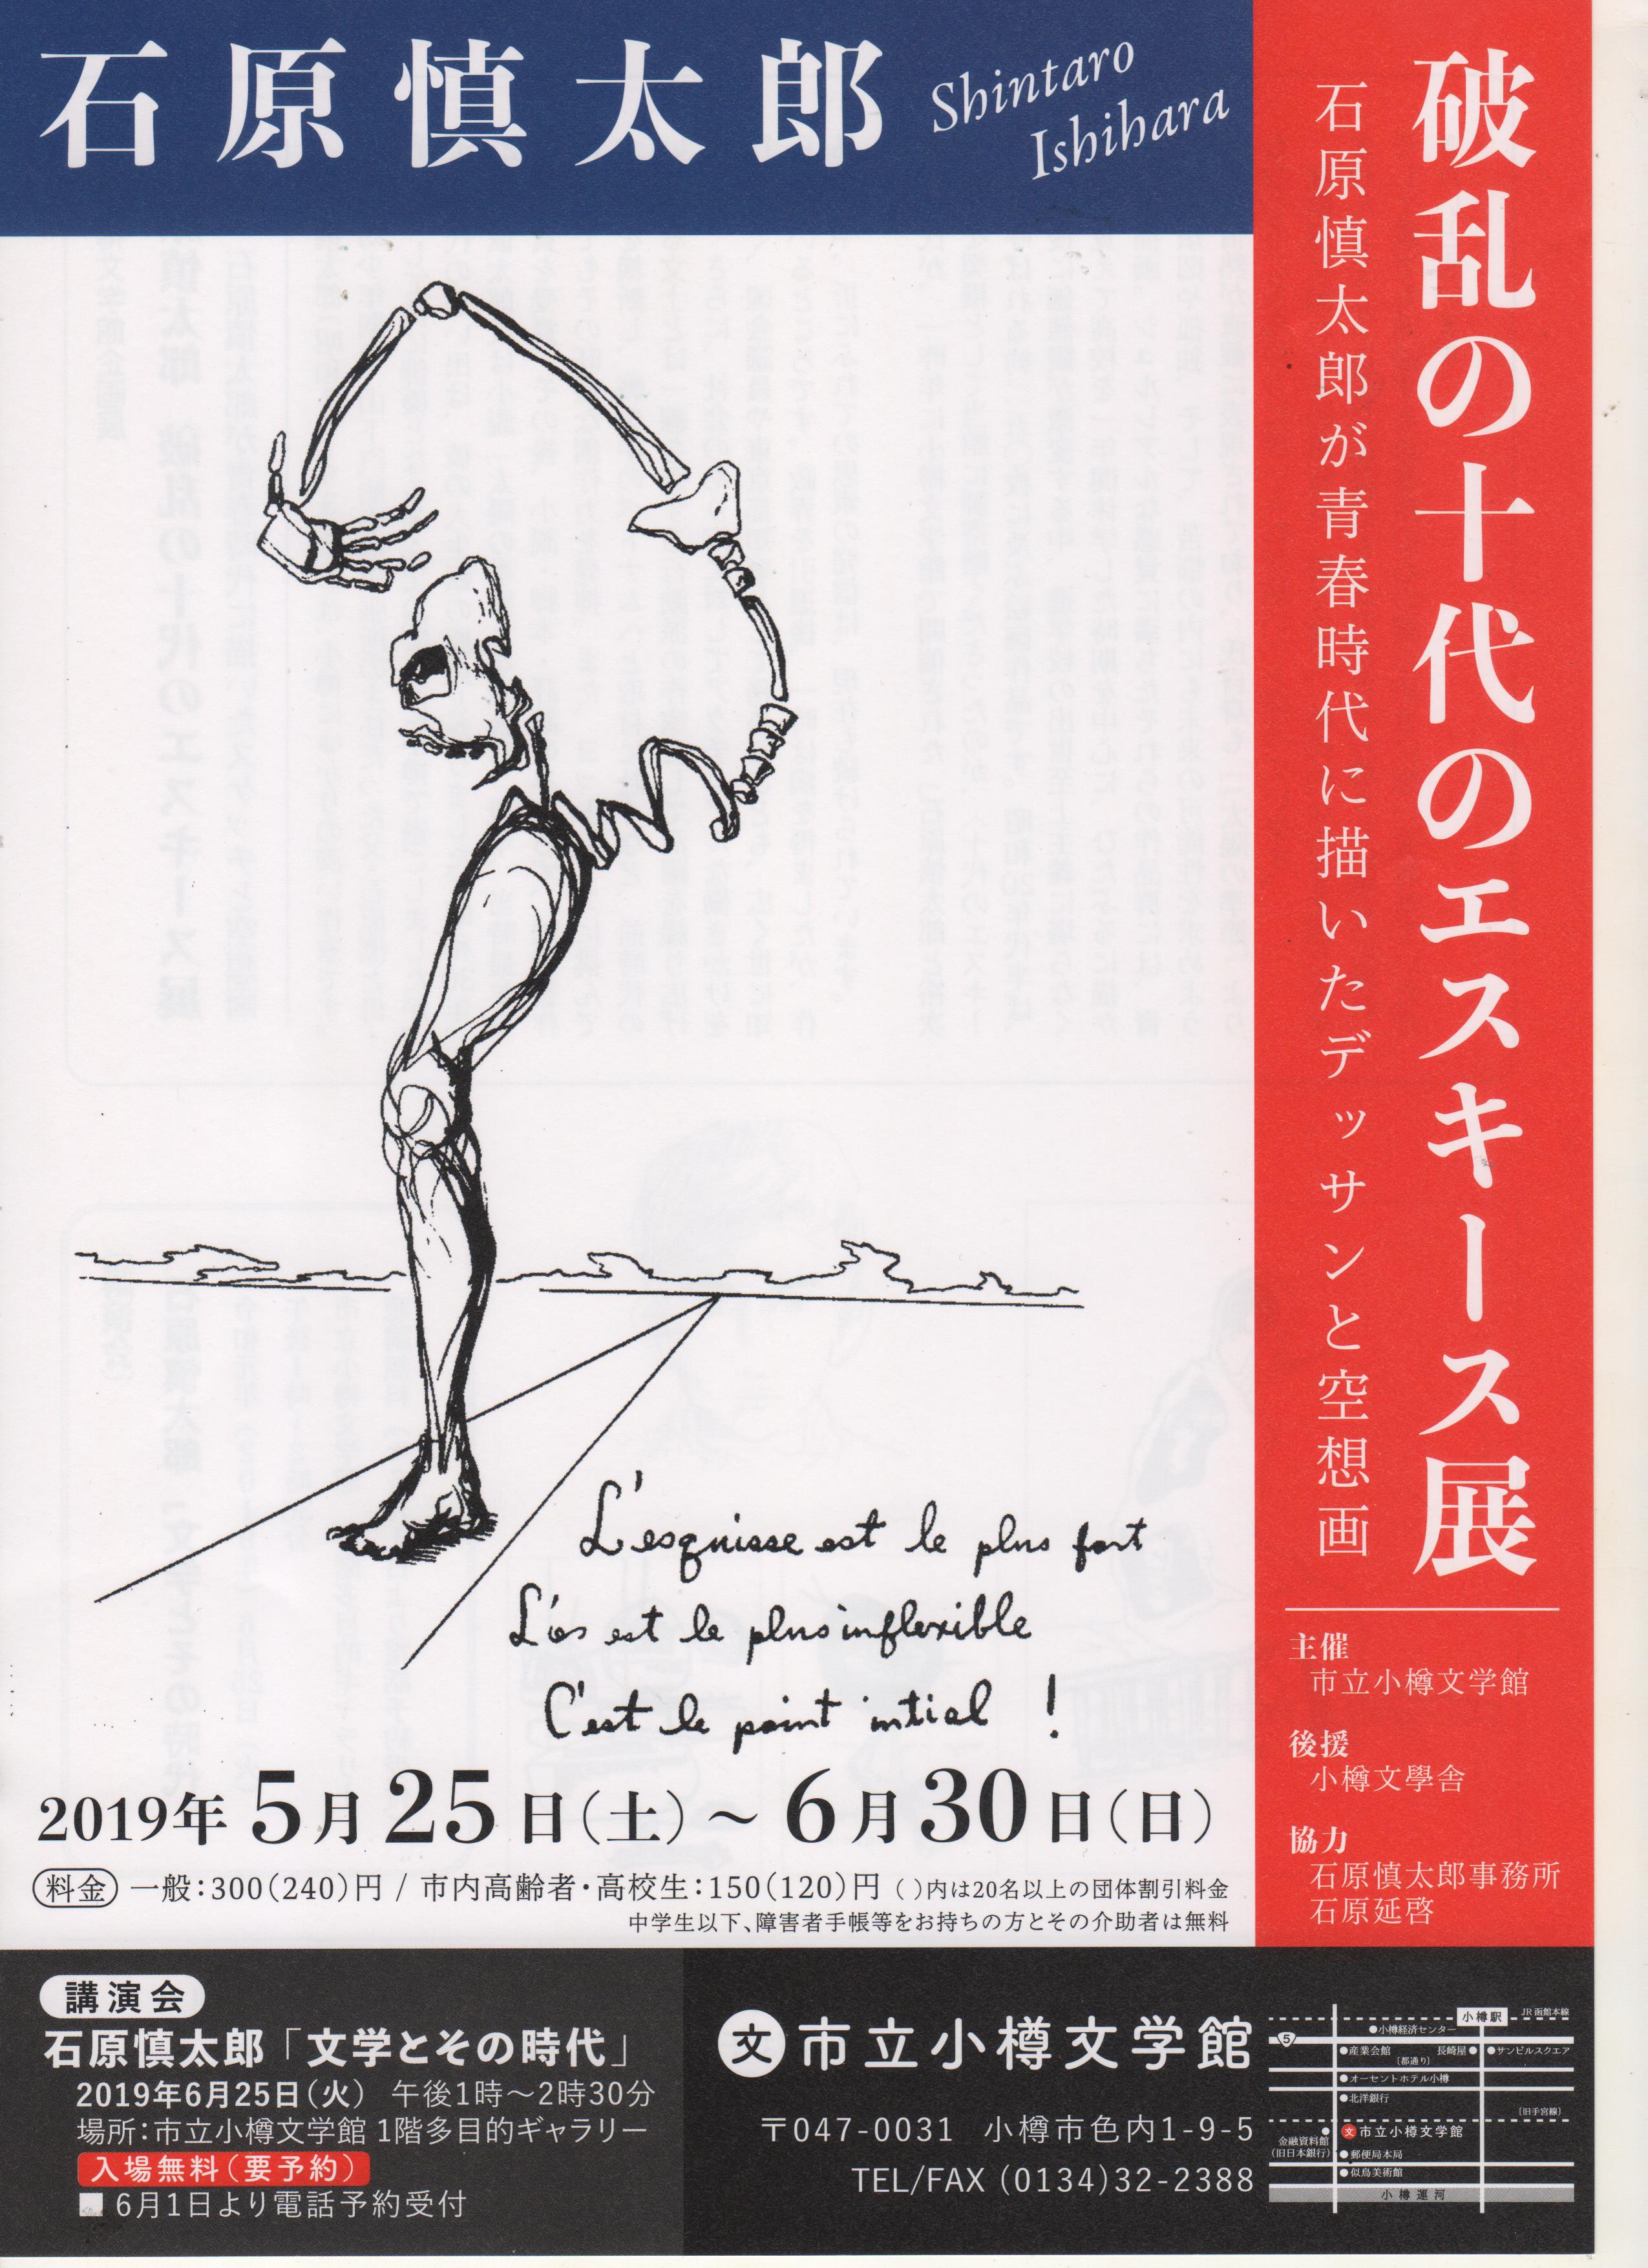 石原慎太郎
Shintaro
Ishihara
破乱の十代のエスキース展
石原慎太郎が青春時代に描いたデッサンと空想画
主催
市立小樽文学館
後援
小樽文學舎
協力
石原慎太郎事務所
石原延啓
L'esquisse est le plus fort
L'os est le plus inflexible
C'est le point intial !
2019年5月25日(土)～6月30日(日)
料金 一般:300(240)円 / 市内高齢者・高校生:150(120)円 ( )内は20名以上の団体割引料金
中学生以下、障害者手帳等をお持ちの方とその介助者は無料
講演会
石原慎太郎「文学とその時代」
2019年6月25日(火) 午後1時～2時30分
場所:市立小樽文学館 1階多目的ギャラリー
入場無料(要予約)
■ 6月1日より電話予約受付
文 市立小樽文学館
〒047-0031 小樽市色内1-9-5
TEL/FAX (0134)32-2388
小樽駅
JR函館本線
5
●小樽経済センター
●産業会館
長崎屋●
●サンビルスクエア
〔都通り〕
●オーセントホテル小樽
●北洋銀行
〔旧手宮線〕
文 市立小樽文学館
金融資料館
(旧日本銀行)
●郵便局本局
●似鳥美術館
小樽運河